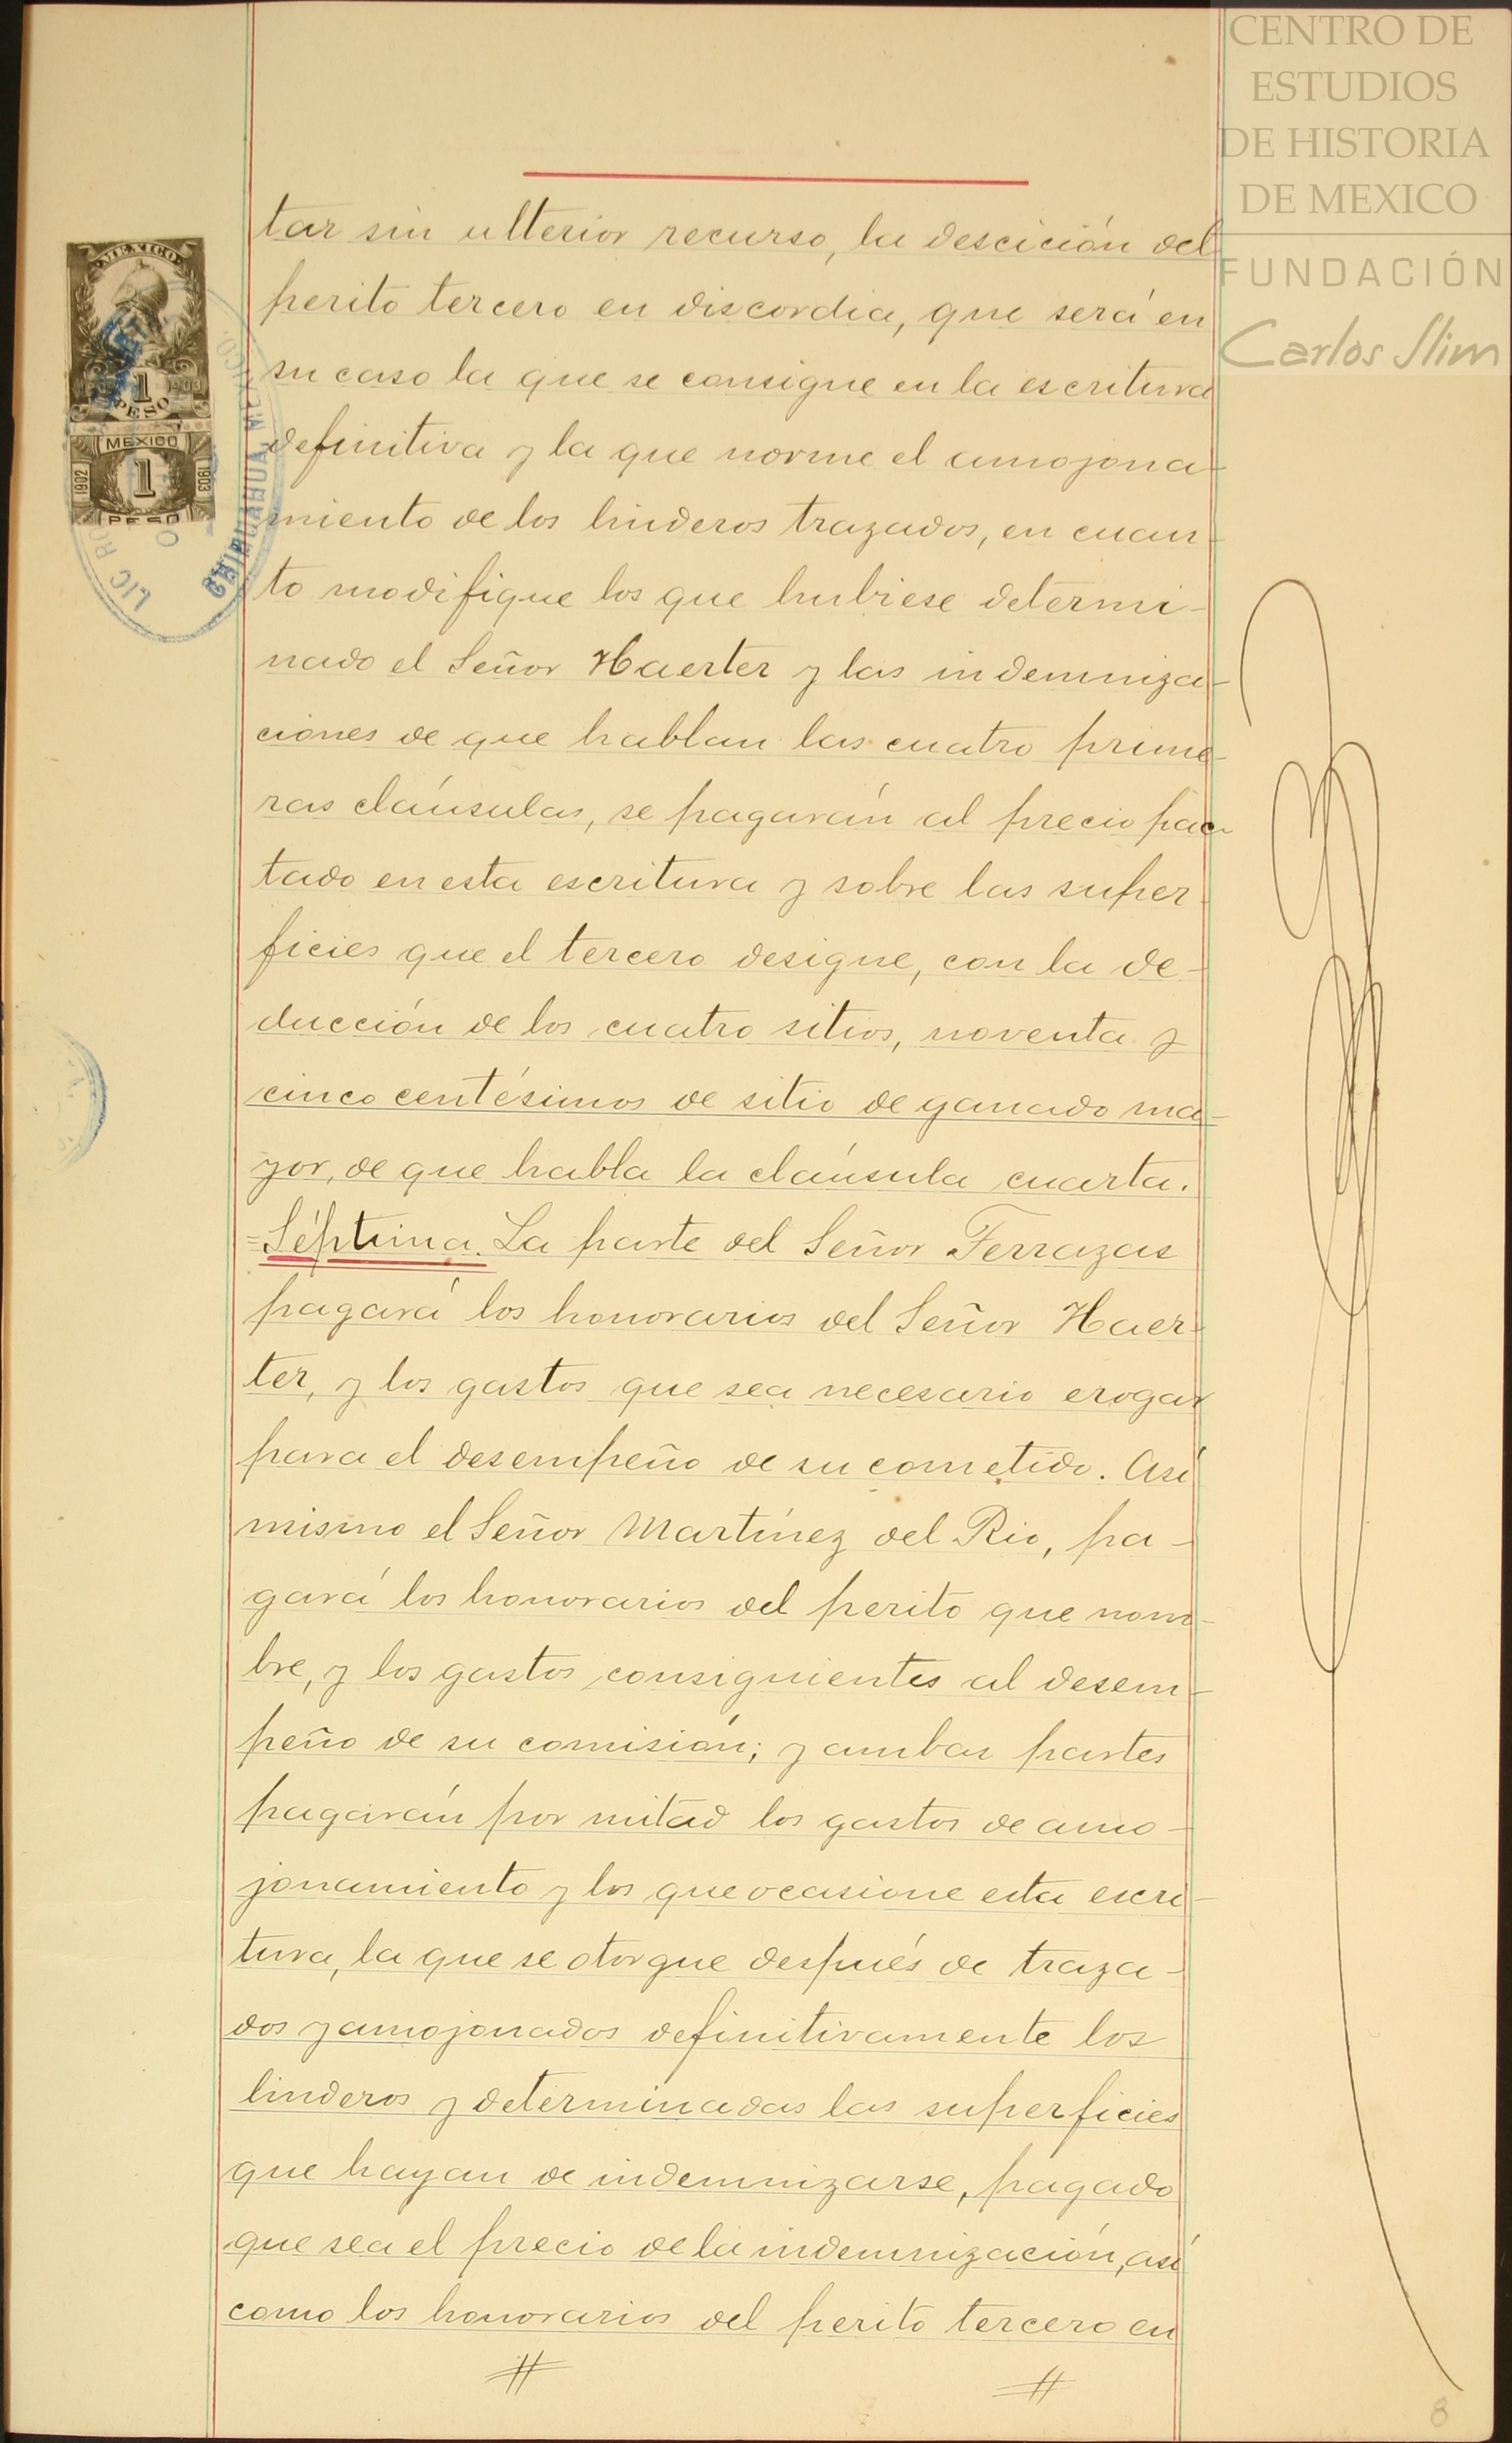 CENTRO DE
ESTUDIOS
DE HISTORIA
DE MEXICO
FUNDACIÓN
Carlos Slim
MEXICO
1
PESO
MEXICO
1902 1 1903
PESO
LIC RO
CHIHUAHUA, MEXICO.
tar sin ulterior recurso, la descición del
perito tercero en discordia, que será en
su caso la que se consigne en la escritura
definitiva y la que norme el amojona-
miento de los linderos trazados, en cuan-
to modifique los que hubiese determi-
nado el Señor Haerter y las indemniza-
ciones de que hablan las cuatro prime-
ras claúsulas, se pagarán al precio pac-
tado en esta escritura y sobre las super-
ficies que el tercero designe, con la de-
ducción de los cuatro sitios, noventa y
cinco centésimos de sitio de ganado ma-
yor, de que habla la claúsula cuarta.
=Séptima. La parte del Señor Terrazas
pagará los honorarios del Señor Haer-
ter, y los gastos que sea necesario erogar
para el desempeño de su cometido. Asi
mismo el Señor Martínez del Rio, pa-
gará los honorarios del perito que nom-
bre, y los gastos consiguientes al desem-
peño de su comisión; y ambas partes
pagarán por mitad los gastos de amo-
jonamiento y los que ocasione esta escri-
tura, la que se otorgue después de traza-
dos y amojonados definitivamente los
linderos y determinadas las superficies
que hayan de indemnizarse, pagado
que sea el precio de la indemnización, asi
como los honorarios del perito tercero en
8